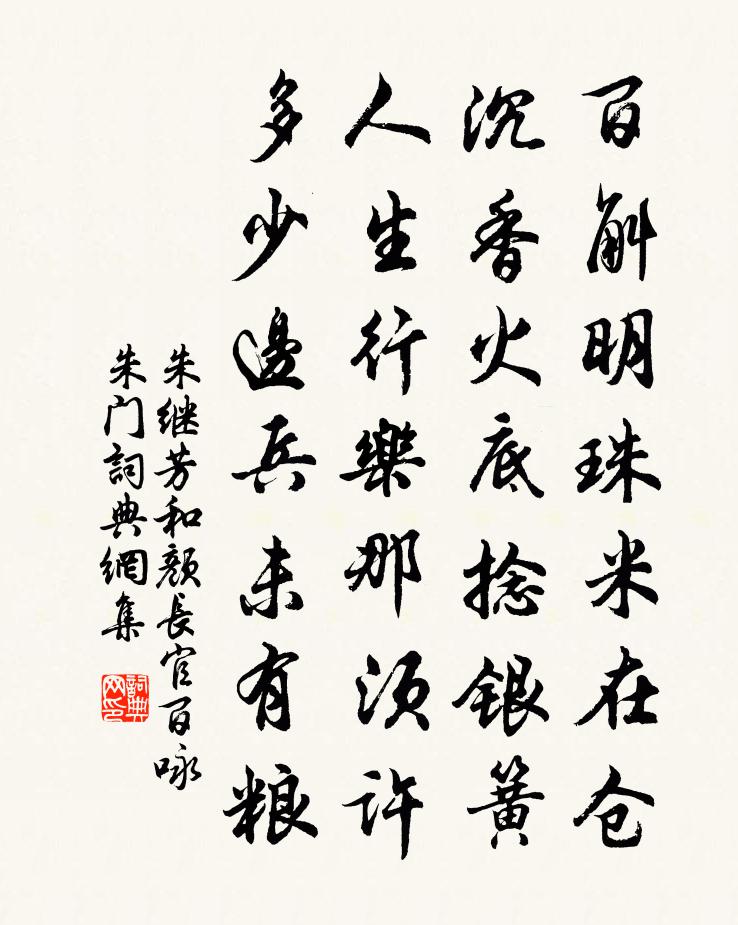 百斛明珠米在仓
沉香火底捻银簧
人生行樂那须许
多少邊兵未有粮
朱继芳和颜長官百咏
朱门詞典網集
詞典网印